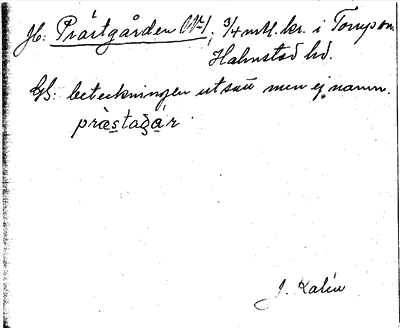 Jb: Prästgården No 1, 3/4 mtl. kr. i Torup sn.
Halmstad hd.
GS: beteckningen utsatt men ej namn.
præstagår
J. Kalén